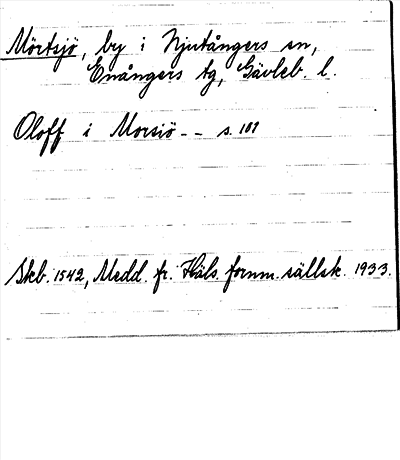 Mörtsjö, by i Njutångers sn,
Enångers tg, Gävleb. l.
Oloff i Morsiö - - s. 101
Skb. 1542, Medd. fr. Häls. fornm. sällsk. 1933.